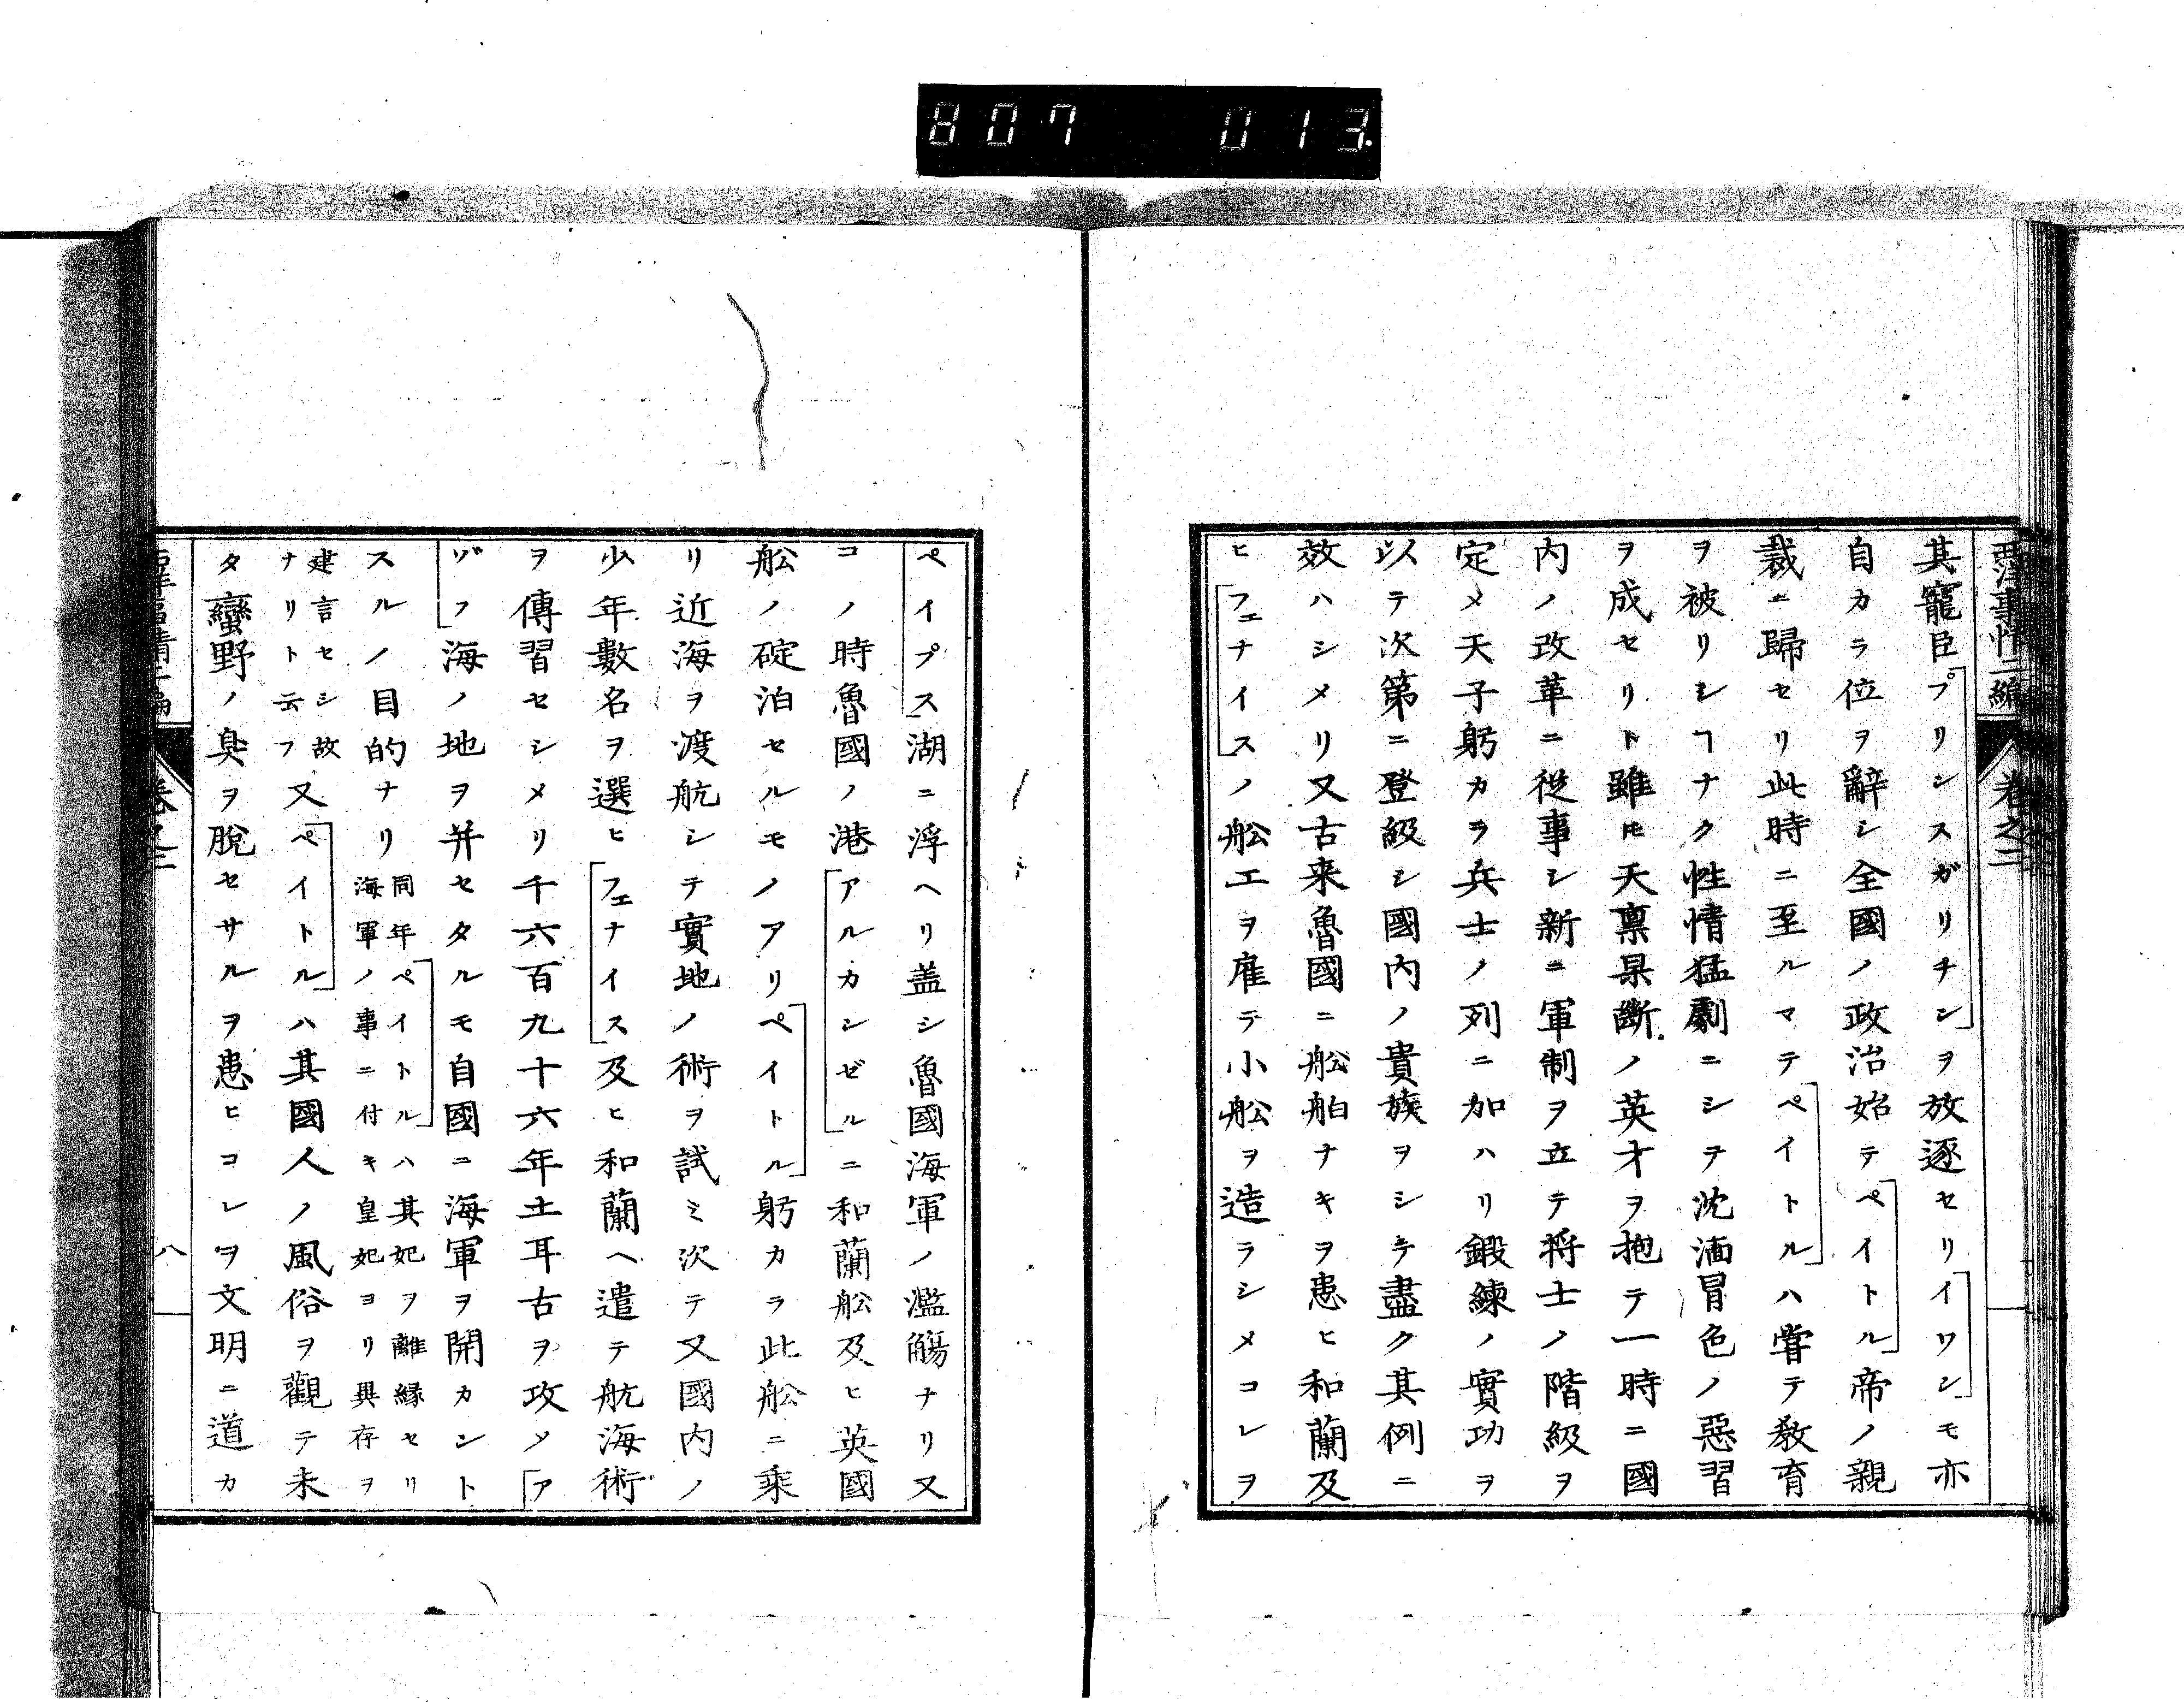 807 013
西洋事情二編 卷之二
其寵臣「プリンスガリチン」ヲ放逐セリ「イワン」モ亦
自カラ位ヲ辭シ全國ノ政治始テ「ペイトル」帝ノ親
裁ニ歸セリ此時ニ至ルマテ「ペイトル」ハ嘗テ敎育
ヲ被リシヿナク性情猛劇ニシテ沈湎冒色ノ惡習
ヲ成セリト雖𪜈天禀果斷ノ英才ヲ抱テ一時ニ國
内ノ改革ニ從事シ新ニ軍制ヲ立テ将士ノ階級ヲ
定メ天子躬カラ兵士ノ列ニ加ハリ鍛練ノ實功ヲ
以テ次第ニ登級シ國内ノ貴族ヲシテ盡ク其例ニ
效ハシメリ又古来魯國ニ舩舶ナキヲ患ヒ和蘭及
ヒ「フェナイス」ノ舩工ヲ雇テ小舩ヲ造ラシメコレヲ
ペイプス」湖ニ浮ヘリ盖シ魯國海軍ノ濫觴ナリ又
コノ時魯國ノ港「アルカンゼル」ニ和蘭舩及ヒ英國
舩ノ碇泊セルモノアリ「ペイトル」躬カラ此舩ニ乘
リ近海ヲ渡航シテ實地ノ術ヲ試ミ次テ又國内ノ
少年數名ヲ選ヒ「フェナイス」及ヒ和蘭ヘ遣テ航海術
ヲ傳習セシメリ千六百九十六年土耳古ヲ攻メ「ア
ゾフ」海ノ地ヲ并セタルモ自國ニ海軍ヲ開カント
スルノ目的ナリ
同年「ペイトル」ハ其妃ヲ離縁セリ
海軍ノ事ニ付キ皇妃ヨリ異存ヲ
建言セシ故
ナリト云フ
又「ペイトル」ハ其國人ノ風俗ヲ觀テ未
タ蠻野ノ臭ヲ脫セサルヲ患ヒコレヲ文明ニ道カ
卷之二
八